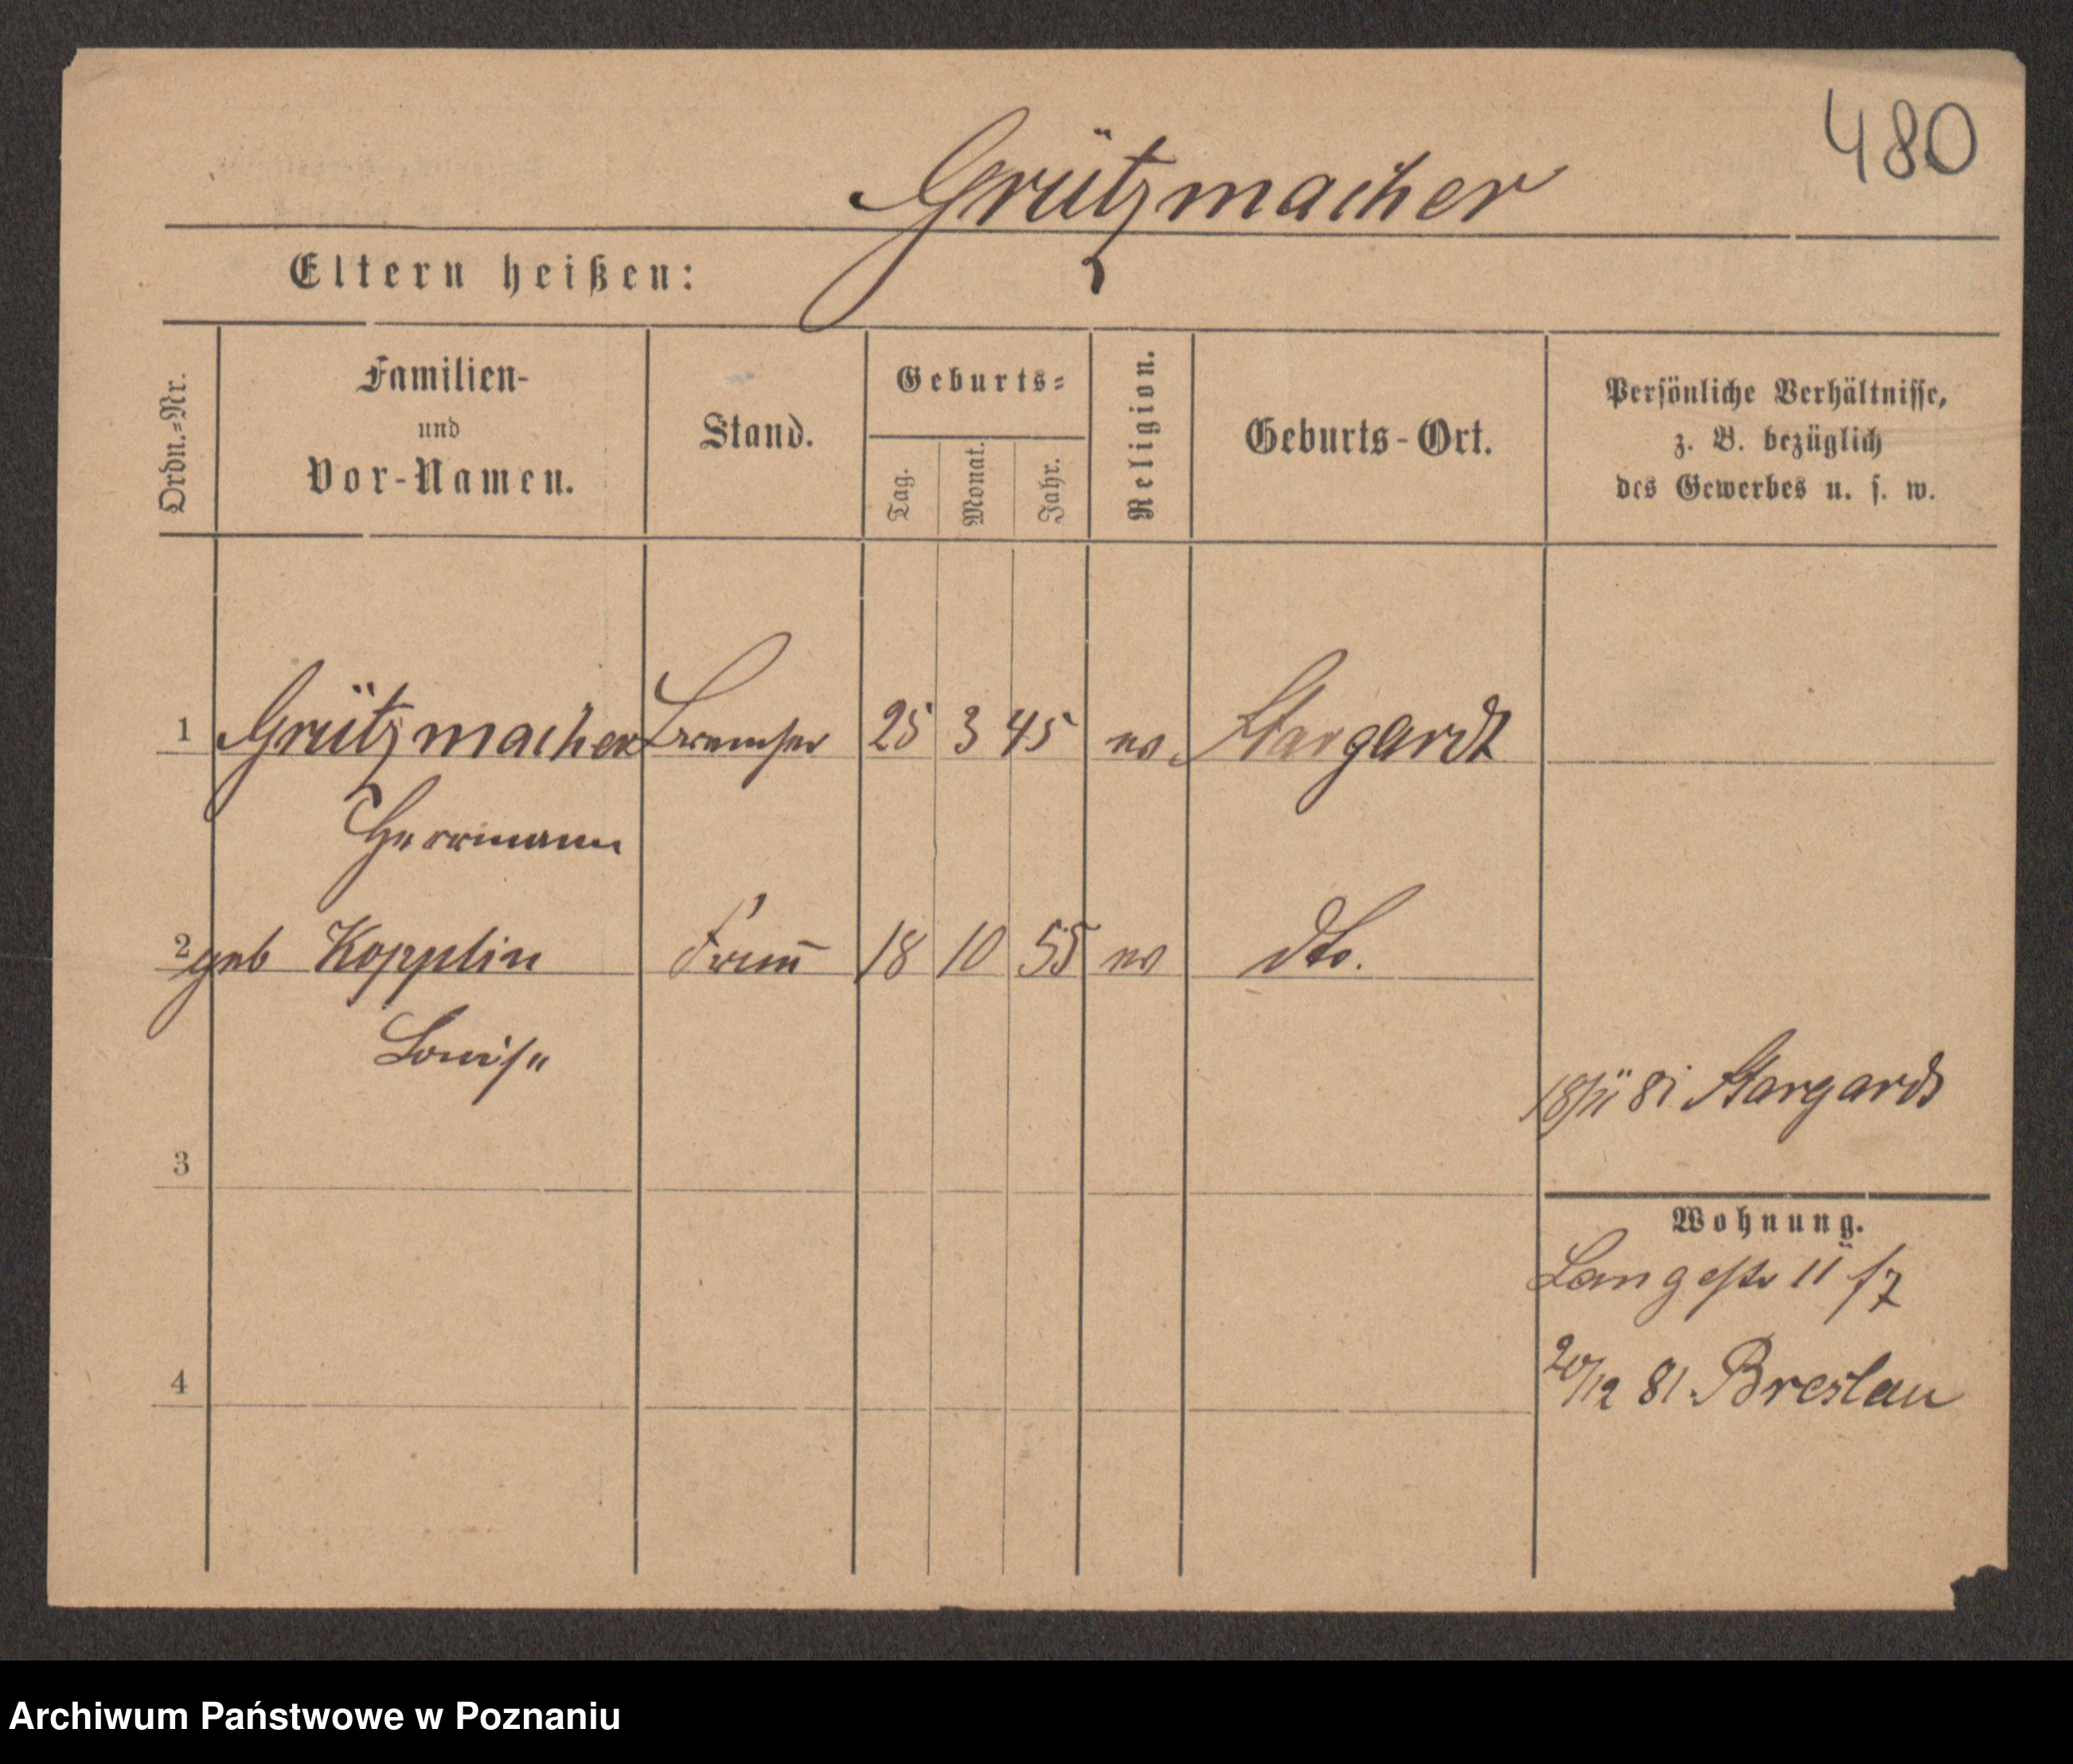 480
Grützmacher
Eltern heißen:
Ordn.=Nr.
Familien-
und
Vor-Namen.
Stand.
Geburts=
Tag.
Monat.
Jahr.
Religion.
Geburts-Ort.
Persönliche Verhältnisse,
z. B. bezüglich
des Gewerbes u. s. w.
1 Grützmacher Bremser 25 3 45 ev. Stargardt
Herrmann
2 geb Kopplin Frau 18 10 55 ev dto.
Louise
18/11 81 Stargard
3
Wohnung.
Langestr 11
20/12 81. Breslau
4
Archiwum Państwowe w Poznaniu